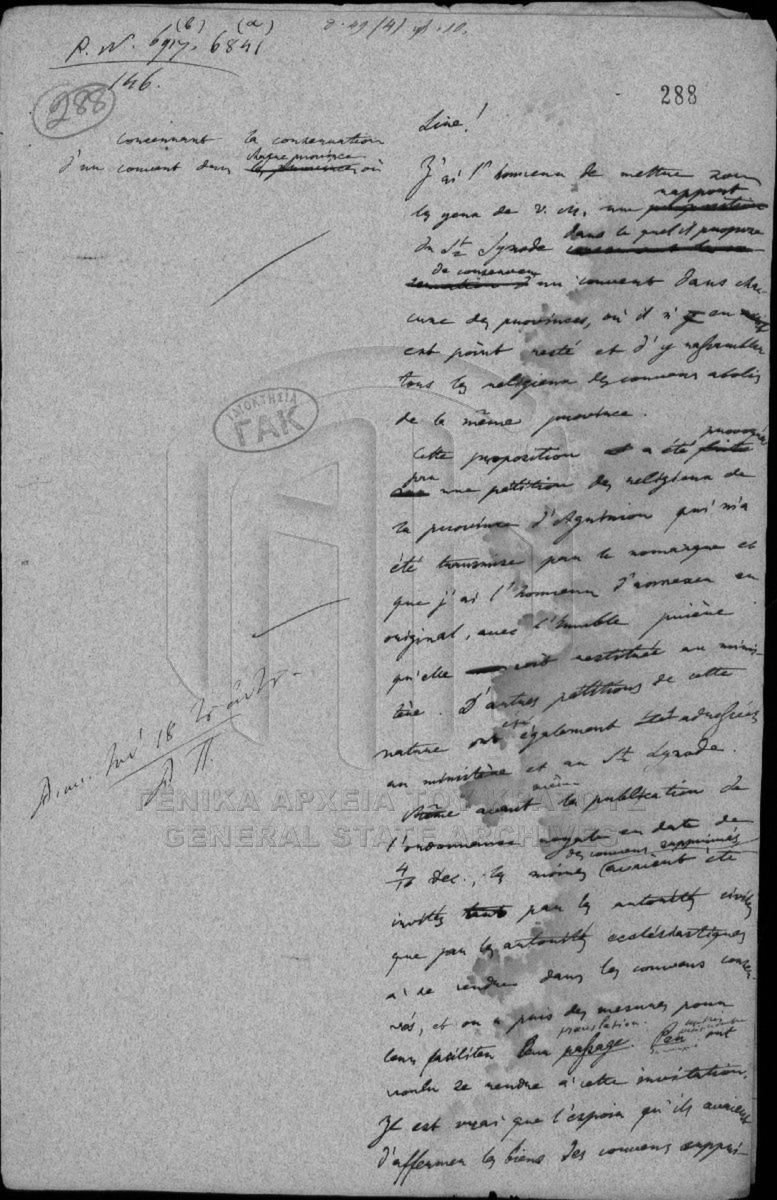 P. N. 6917, 6841
(b) (a)
146.
288
288
concernant la conservation
d'un couvent dans chaque province
les provinces où
Sire!
J'ai l'honneur de mettre sous
les yeux de V. M. un rapport
du St Synode dans lequel il propose
de conserver un couvent dans cha-
cune des provinces, où il n'y en
est point resté et d'y rassembler
tous les religieux des couvens abolis
de la même province.
Cette proposition a été provoquée
par une pétition des religieux de
la province d'Agrinion qui m'a
été transmise par le nomarque et
que j'ai l'honneur d'annexer en
original, avec l'humble prière
qu'elle soit restituée au minis-
tère. D'autres pétitions de cette
nature ont également été adressées
au ministère et au St Synode.
même avant la publication de
l'ordonnance royale en date de
4/16 Dec., les moines des couvens supprimés avaient été
invités tant par les autorités civiles
que par les autorités ecclésiastiques
à se rendre dans les couvens conser-
vés, et on a pris des mesures pour
leur faciliter leur translation. passage. Peu ont
voulu se rendre à cette invitation.
Il est vrai que l'espoir qu'ils avaient
d'affermer les biens des couvens suppri-
ΙΔΙΟΚΤΗΣΙΑ
ΓΑΚ
ΓΕΝΙΚΑ ΑΡΧΕΙΑ ΤΟΥ ΚΡΑΤΟΥΣ
GENERAL STATE ARCHIVES